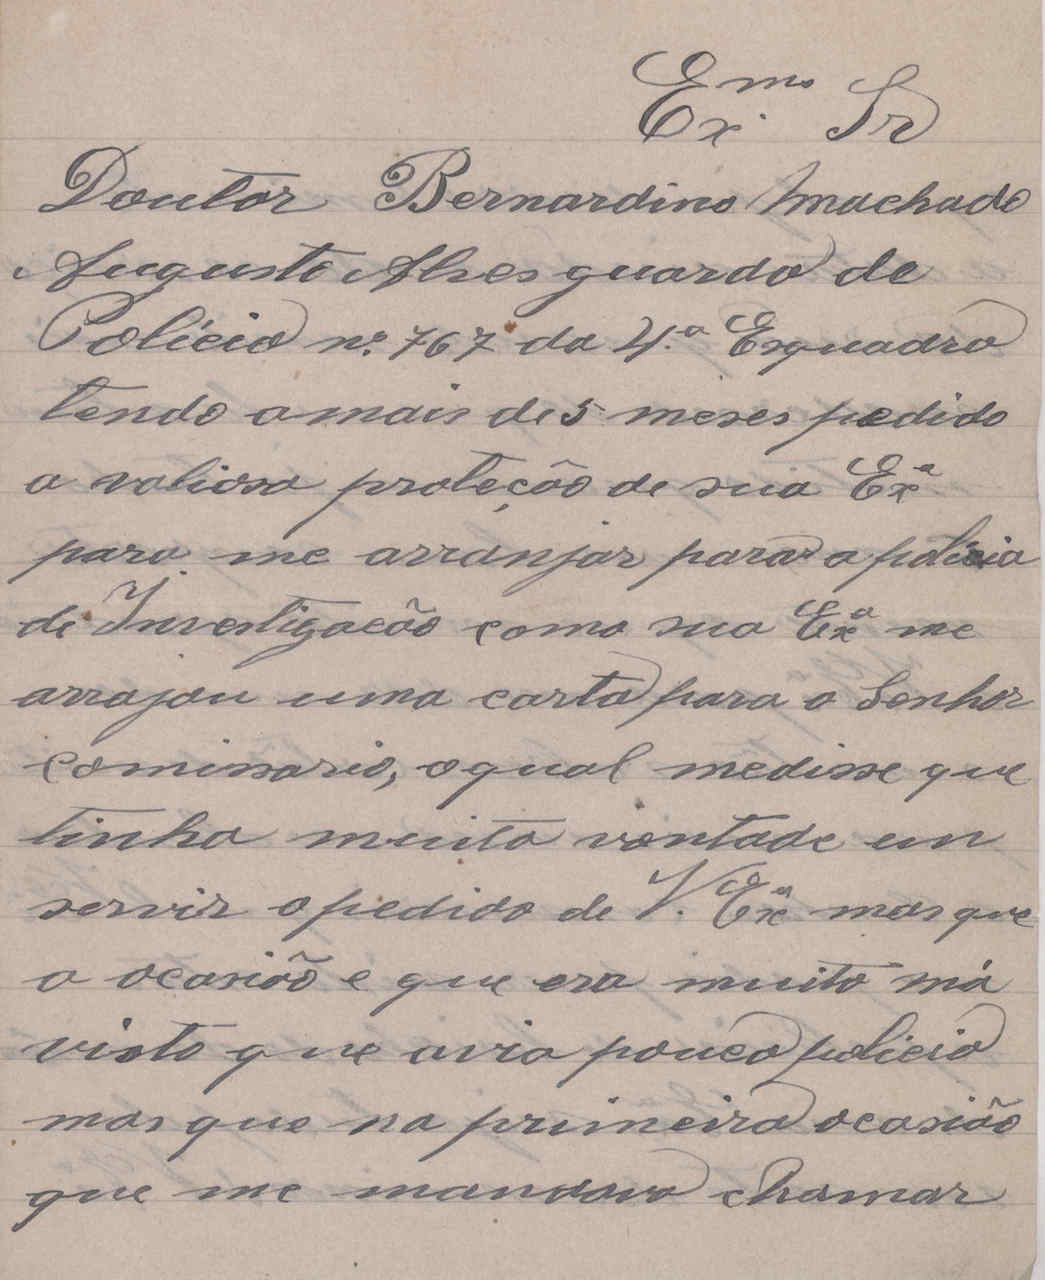 Exmo Sr
Doutor Bernardino Machado
Augusto Alves guarda de
Policia nº 767 da 4.ª Exquadra
tendo a mais de 5 meses pedido
a valiosa proteção de sua Exª
para me arranjar para a policia
de Investigacão como sua Exª me
arrajou uma carta para o Senhor
Comissario, o qual medisse que
tinha muita vontade em
servir o pedido de V. Exª mas que
a ocasiõo e que era muito má
visto que avia pouca policia
mas que na primeira ocasião
que me mandava chamar